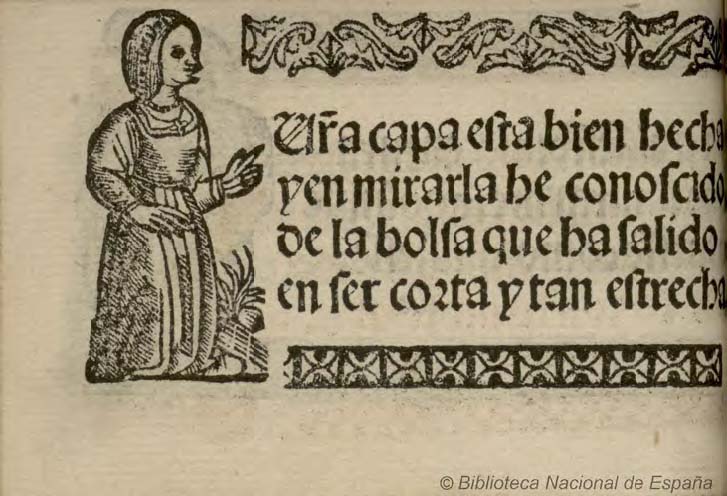 Ur̃a capa esta bien hecha
y en mirarla he conoscido
de la bolsa que ha salido
en ser corta y tan estrecha
© Biblioteca Nacional de España